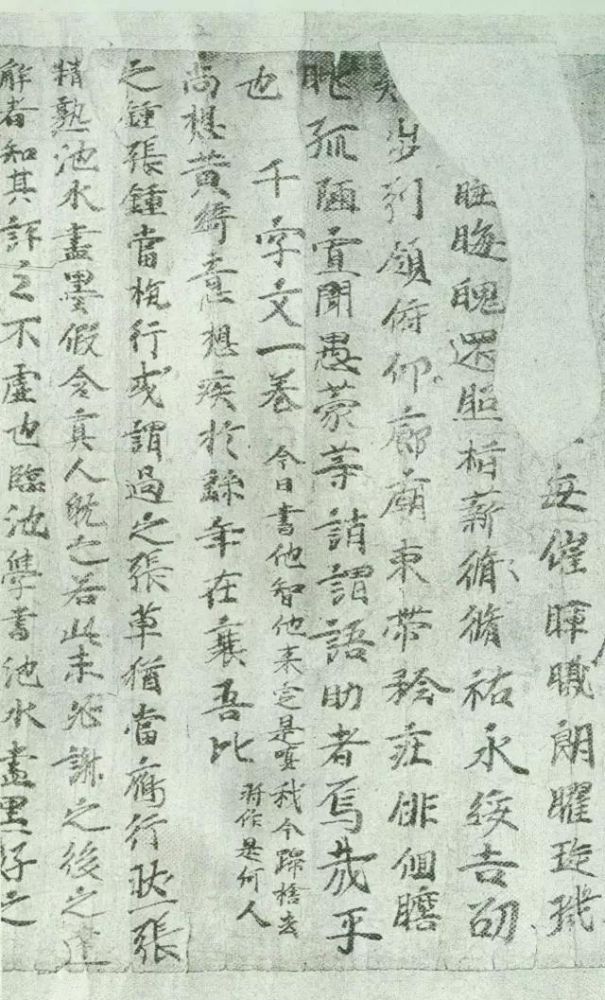 每催暉曦朗曜琁璣
晦魄還照指薪脩脩祐永綏吉劭
矩步引領俯仰廊廟束帶矜庄俳佪瞻
眺孤陋寡聞愚蒙等誚謂語助者焉哉乎
也　千字文一卷　今日書他智他来定是嗔我今歸捨去
將作是何人
尚想黄綺意想疾於繇年在襄吾比
之鍾張鍾當抗行或謂過之張草猶當鴈行狀一張
精熟池水盡墨假令寡人耽之若此未必謝之後之達
解者知其評之不虚也臨池學書池水盡墨好之